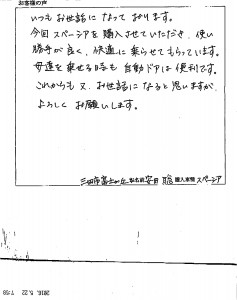 お客様の声
いつもお世話になっております。
今回スペーシアを購入させていただき、使い
勝手が良く、快適に乗らせてもらっています。
母達を乗せる時も自動ドアは便利です。
これからも又、お世話になると思いますが、
よろしくお願いします。
三田市富士が丘 お名前 安田 聡 購入車種 スペーシア
2016. 5.22 7:59